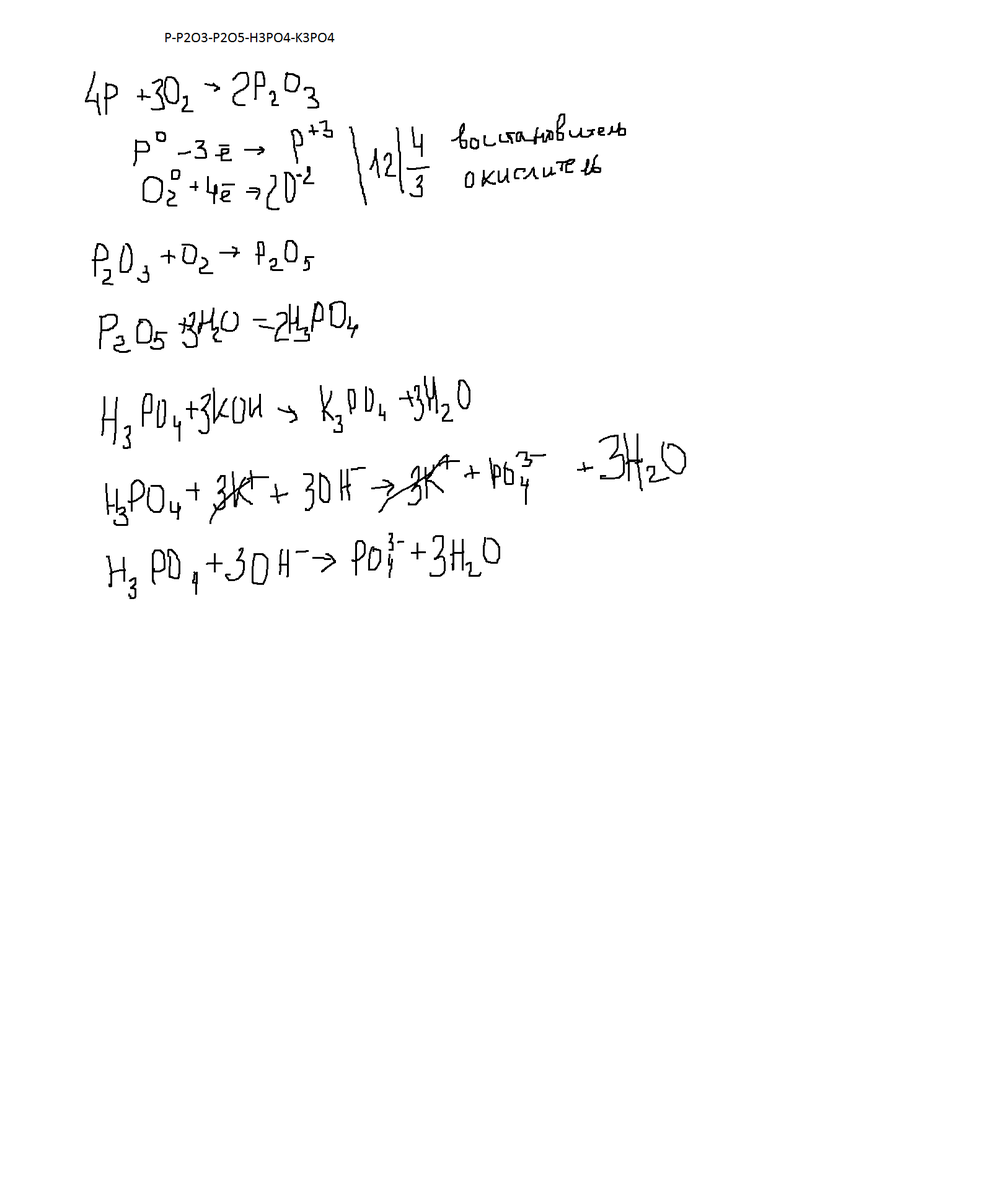 P-P2O3-P2O5-H3PO4-K3PO4
4P +3O₂ → 2P₂O₃
P⁰ -3ē → P⁺³ | 12 | 4 восстановитель
O₂⁰ +4ē → 2O⁻² 3 окислитель
P₂O₃ + O₂ → P₂O₅
P₂O₅ + 3H₂O = 2H₃PO₄
H₃PO₄ + 3KOH → K₃PO₄ + 3H₂O
H₃PO₄ + 3K⁺ + 3OH⁻ → 3K⁺ + PO₄³⁻ + 3H₂O
H₃PO₄ + 3OH⁻ → PO₄³⁻ + 3H₂O